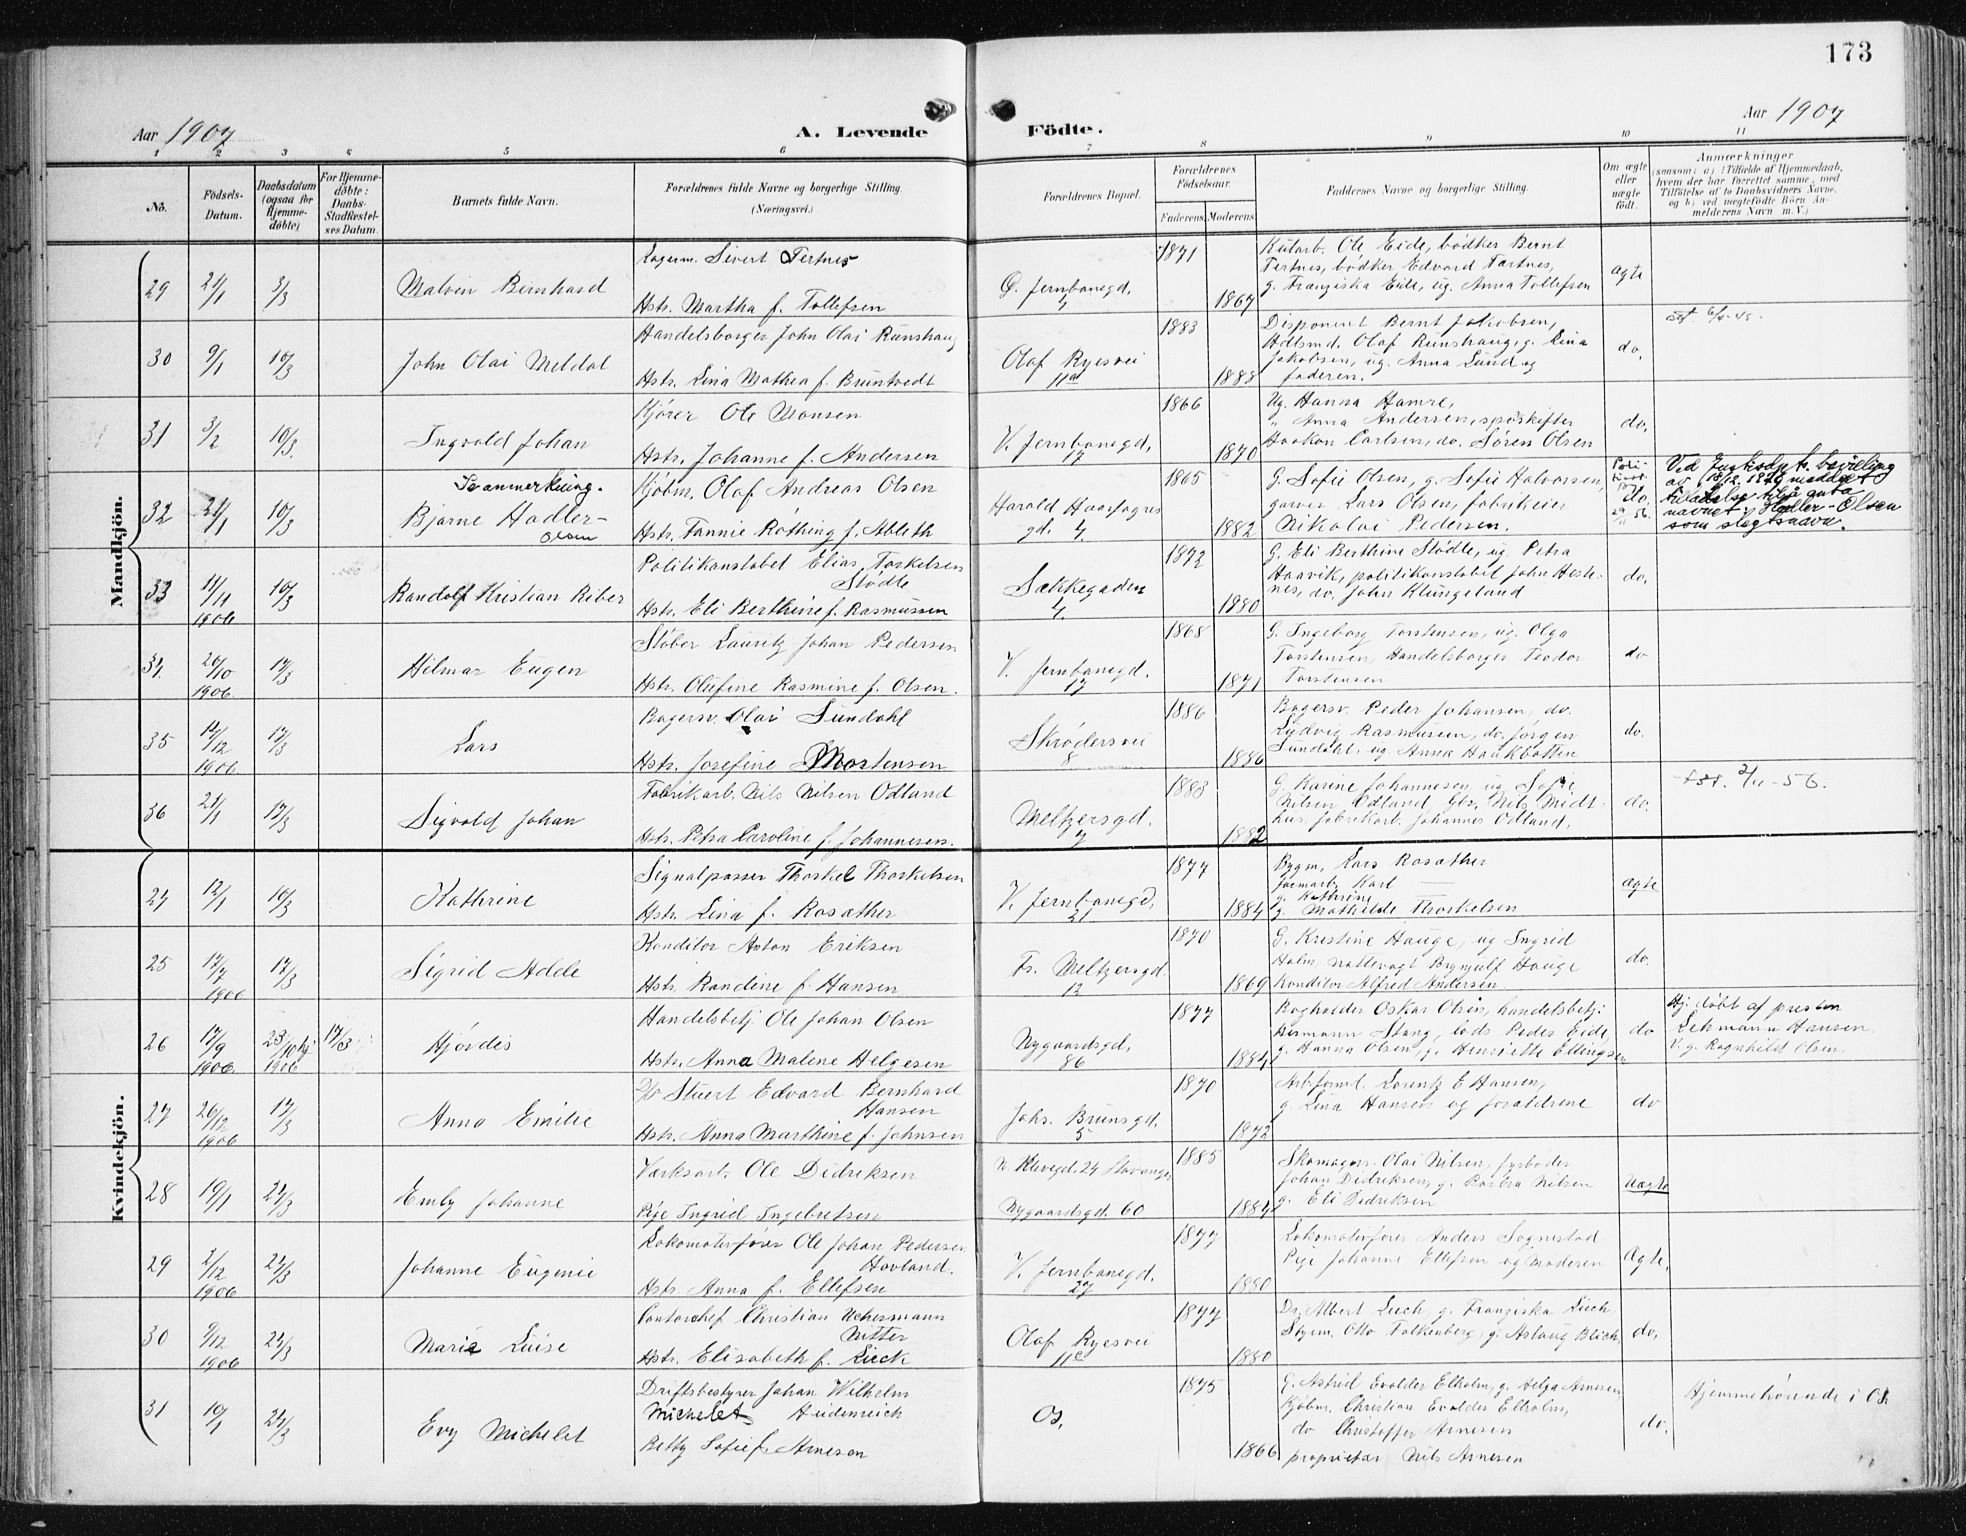 173
Aar 1907
A. Levende Födte.
Aar 1907
1 2 3 4 5 6 7 8 9 10 11
No.
Födsels-Datum.
Daabsdatum (ogsaa for Hjemme-döbte)
For Hjemme-döbte: Daabs-Stadfæstel-ses Datum.
Barnets fulde Navn.
Forældrenes fulde Navne og borgerlige Stilling. (Næringsvei.)
Forældrenes Bopæl.
Forældrenes Födselsaar.
Faderens Moderens
Faddernes Navne og borgerlige Stilling.
Om ægte eller uægte födt.
Anmærkninger
(saasom: a) i Tilfælde af Hjemmedaab, hvem der har forrettet samme, med Tilföielse af to Daabsvidners Navne, og b) ved uægtefödte Börn An-melderens Navn m. V.)
Mandkjön.
29 3/3 Malvin Bernhard
Lagerm. Sivert Tertnes
Hstr. Martha f. Tollefsen
Ö. Jernbanegd. 4
1871
1867
Kularb. Ole Eide, bödker Bernt
Tertnes, bödker Edvard Tertnes,
g. Franziska Eide, ug. Anna Tollefsen
ægte
30 9/1 10/3 John Olai Meldal
Handelsborger John Olai Runshaug
Hstr. Lina Mathea f. Bruntvedt
Olaf Ryesvei 11a
1883
1883
Disponent Bernt Jakobsen,
Hdlsmd. Olaf Runshaug, g. Lina
Jakobsen, ug. Anna Lund og
faderen.
do.
31 3/2 10/3 Ingvald Johan
Kjörer Ole Monsen
Hstr. Johanne f. Andersen
V. Jernbanegd. 17
1866
1870
Ug. Hanna Hamre,
" Anna Andersen, sporskifter
Haakon Carlsen, do. Sören Olsen
do.
32 10/3 Se anmerkning.
Bjarne Hadler-Olsen
Kjöbm. Olaf Andreas Olsen
Hstr. Fannie Röthing f. Ableth
Harald Haarfagres gd. 4
1865
1882
G. Sofie Olsen, g. Sofie Halvorsen,
garver Lars Olsen, fabrikeier
Nikolai Pedersen.
do.
Ved Justisdpt.s bevilling
navnet: Hadler-Olsen
som slegtsnavn.
33 11/11 1906 10/3 Randolf Kristian Riber
Politikonstabel Elias Torkelsen
Stödle
Hstr. Eli Berthine f. Rasmussen
Sækkegaden 4
1872
1880
G. Eli Berthine Stödle, ug. Petra
Haavik, politikonstabel John Heste-
nes, do. John Klungeland
do.
34. 1906 17/3 Hilmar Eugen
Stöber Lauritz Johan Pedersen
Hstr. Olufine Rasmine f. Olsen.
V. Jernbanegd. 17
1868
1871
G. Ingeborg Torstensen, ug. Olga
Torstensen, Handelsborger Teodor
Torstensen
do
35 1906 17/3 Lars
Bagersv. Olai Sundahl
Hstr. Josefine Mortensen
Skrödersvei 8
1886
1886
Bagersv. Peder Johansen, do.
Lydvig Rasmussen, do. Jörgen
Sundahl, ug. Anna Haukbotten
do.
36 21/1 17/3 Sigvald Johan
Fabrikarb. Nils Nilsen Odland
Hstr. Petra Caroline f. Johannesen.
Meltzersgd. 7
1883
1882
G. Karine Johannesen, ug. Sofie
Nilsen Odland, Gbr. Nils Midt-
hus, fabrikarb. Johannes Odland.
do.
Kvindekjön.
24 12/1 10/3 Kathrine
Signalpasser Thorkel Thorkelsen
Hstr. Lina f. Rosather
V. Jernbanegd. 21
1877
1884
Bygm. Lars Rosather
Karl —
g. Kathrine
g. Mathilde Thorkelsen
ægte
25 17/7 1906 17/3 Sigrid Adele
Konditor Anton Eriksen
Hstr. Randine f. Hansen
Fr. Meltzersgd. 12
1870
1869
G. Kristine Hauge, ug Ingrid
Holm, nattevagt Brynjulf Hauge
Konditor Alfred Andersen
do.
26 17/9 1906 23/10 hj. 1906 17/3 Hjördis
Handelsbetj. Ole Johan Olsen
Hstr. Anna Malene Helgesen
Nygaardsgd. 86
1877
1884
Bogholder Oskar Olsen, handelsbetj.
Hermann Stang, lods Peder Eide,
g. Hanna Olsen, g. Henriette Ellingsen
do
Hj. döbt af presten
Lehmann Hansen.
V. g. Ragnhild Olsen.
27 26/12 1906 17/3 Anna Emilie
D/s Stuert Edvard Bernhard
Hansen
Hstr. Anna Marthine f. Johnsen
Johs. Brunsgd. 5
1870
1872
Arb.form. Lorentz E Hansen,
g. Lina Hansen og forældrene
do
28 19/1 24/3 Emly Johanne
Værksarb. Ole Didriksen
Pige Ingrid Ingebretsen
N. Klevegd. 24 Stavanger
Nygaardsgd. 60
1885
1884
Skomagersv. Olai Nilsen, fyrböder
Johan Didriksen, g. Barbra Nilsen
g. Eli Didriksen
Uægte
29 2/12 1906 24/3 Johanne Eugenie
Lokomotivförer Ole Johan Pedersen
Hovland.
Hstr. Anna f. Ellefsen
V. Jernbanegd. 27
1877
1880
Lokomotivförer Anders Sognestad
Pige Johanne Ellefsen og Moderen
Ægte.
30 9/12 1906 24/3 Marie Luise
Contorchef Christian Uchermann
Nitter
Hstr. Elisabeth f. Lück
Olaf Ryesvei 11c
1877
1880
Dr. Albert Lück, g. Franziska Lück
Styrm. Otto Falkenberg, g. Aslaug Blich
do.
31 10/1 24/3 Evy Michelet
Driftsbestyrer Johan Wilhelm
Michelet Heidenreich
Betty Sofie f. Arnesen
Os.
1875
1866
G. Astrid Evalder Elholm, g. Helga Arnesen
Kjöbm. Christian Evalder Elholm,
do Christoffer Arnesen
proprietær Nils Arnesen
do.
Hjemmehörende i Os.